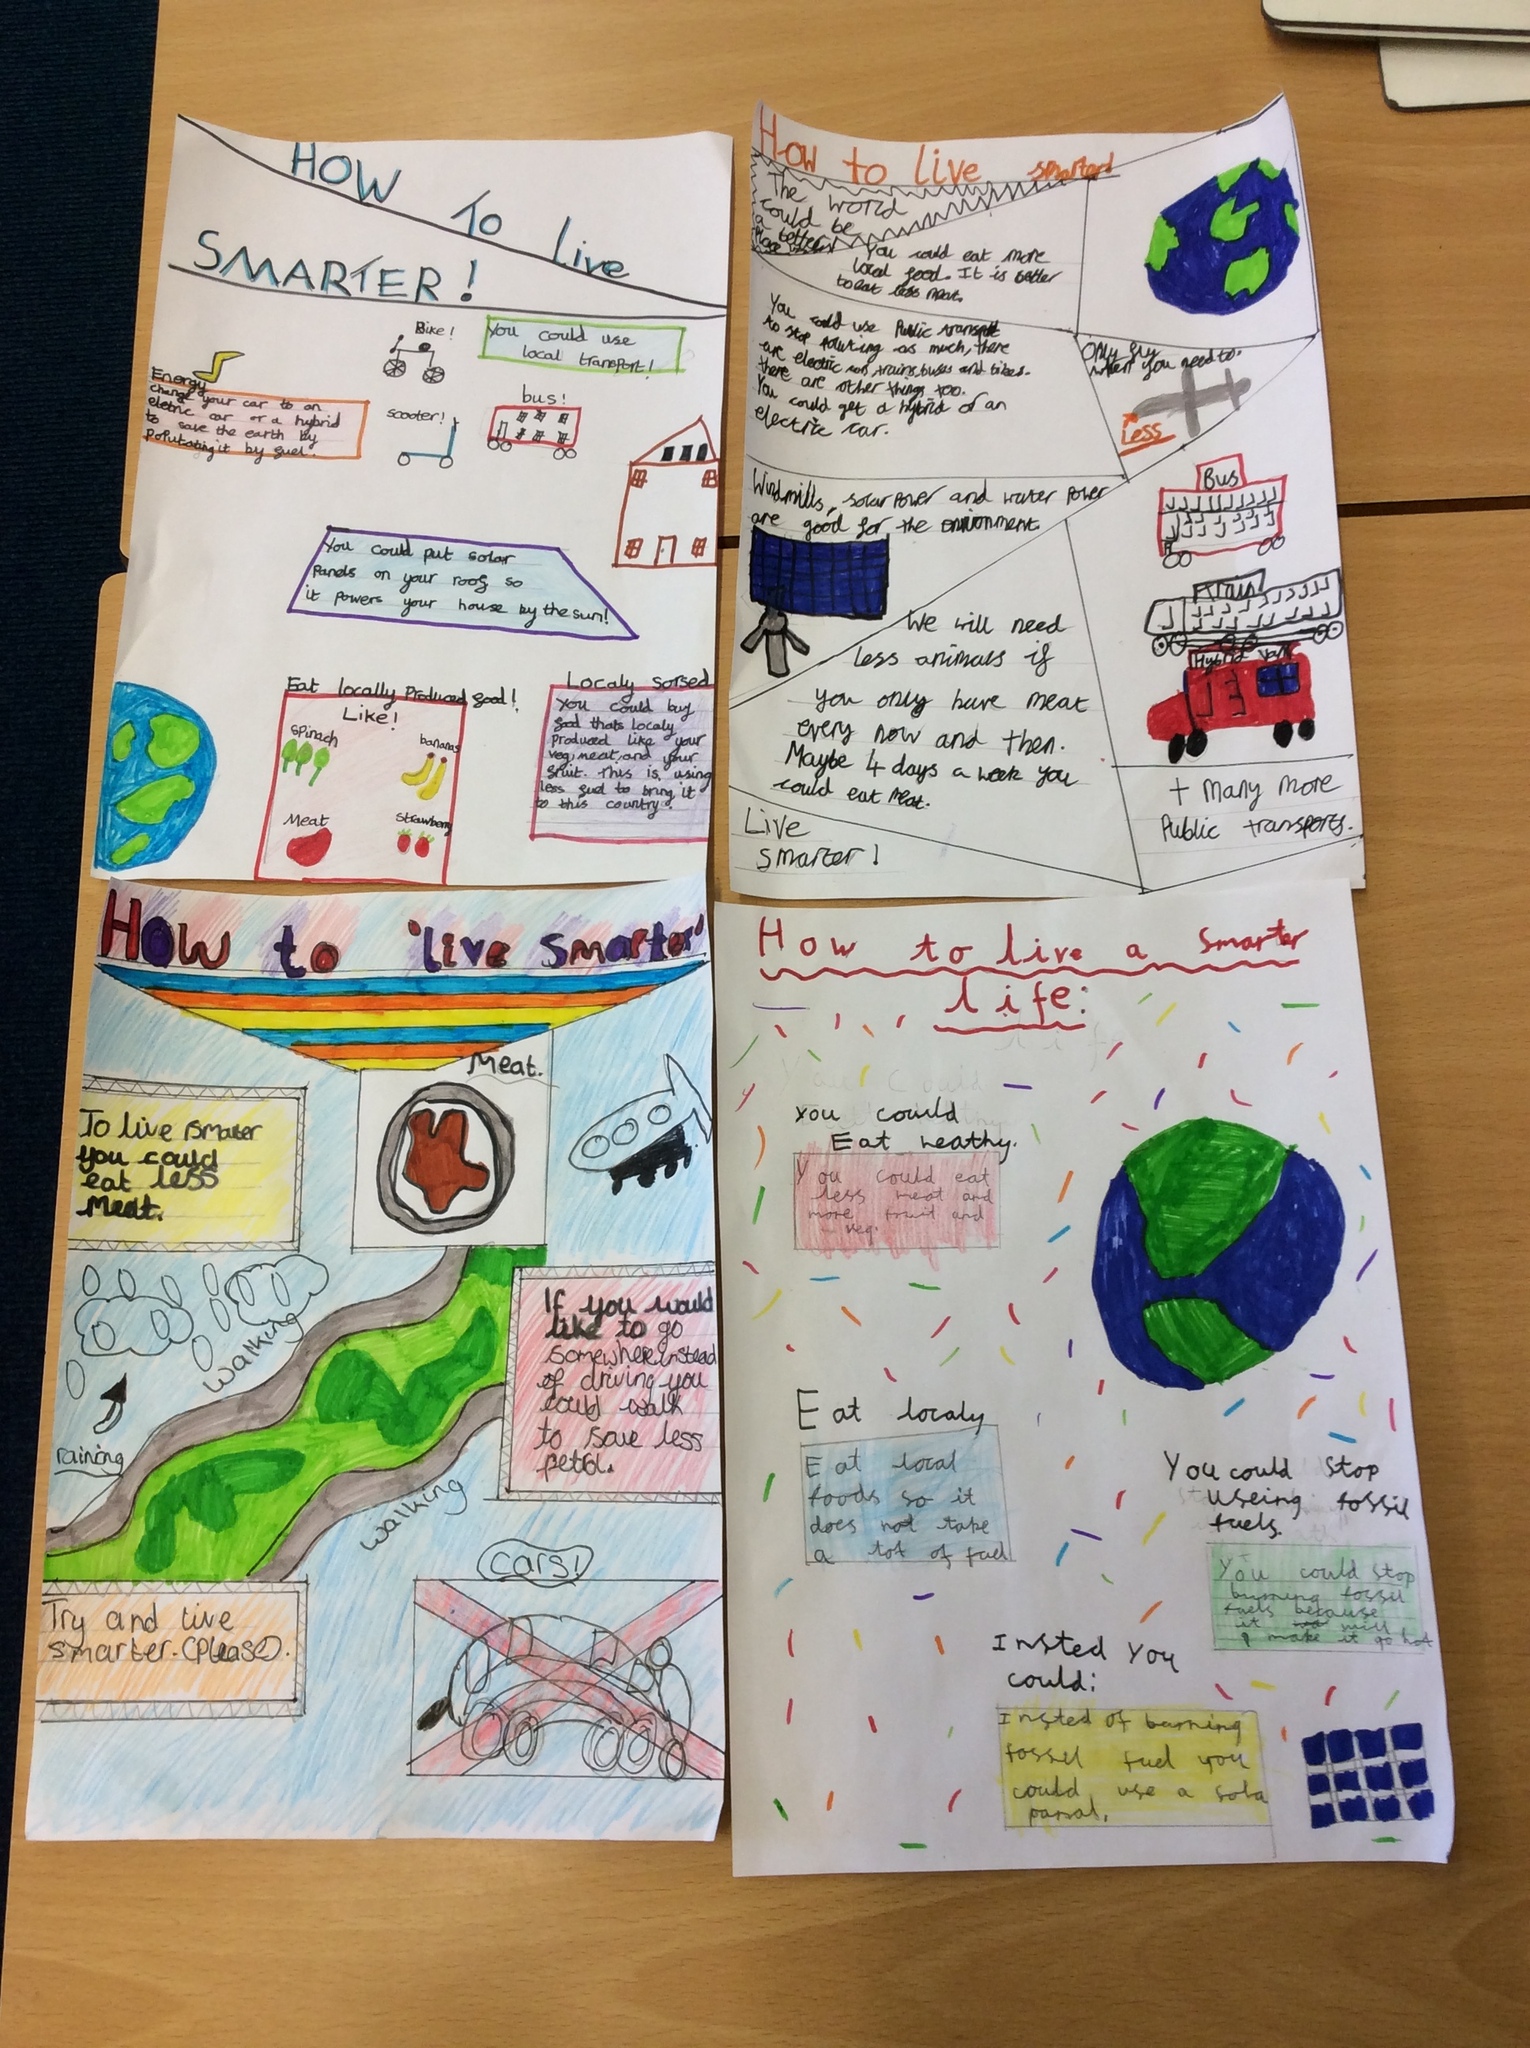 HOW
To
live
SMARTER!
Bike!
You could use
local transport!
Energy
change your car to an
eletric car or a hybrid
to save the earth by
polutating it by fuel.
scooter!
bus!
You could put solar
Panels on your roof so
it powers your house by the sun!
Eat locally Produced food!
Like!
spinach
bananas
Meat
strawberry
Localy sorsed
You could buy
food thats localy
produced like your
veg, meat, and your
fruit. This is using
less fuel to bring it
to this country.
How to live smarter!
The world
could be
a better
You could eat more
local food. It is better
to eat less meat.
You could use Public transport
to stop poluting as much, there
are electric cars, trains, buses and bikes.
there are other things too.
You could get a hybrid or an
electric car.
Only fly
when you need to.
Less
Windmills, solar power and water power
are good for the enironment
Bus
train
Hybrid Van
We will need
less animals if
you only have meat
every now and then.
Maybe 4 days a week you
could eat meat.
+ Many more
Public transports.
Live
smarter!
How to 'live smarter'
Meat.
To live smarter
you could
eat less
meat.
walking
raining
If you would
like to go
somewhere, instead
of driving you
could walk
to save less
petrol.
walking
cars!
Try and live
smarter. (Please).
How to live a smarter
life:
You could
Eat heathy.
You could eat
less meat and
more fruit and
veg.
Eat localy
Eat local
foods so it
does not take
a lot of fuel
You could stop
useing fossil
fuels.
You could stop
burning fossil
fuels because
it will
make it go hot
Insted you
could:
Insted of burning
fossil fuel you
could use a sola
panal.